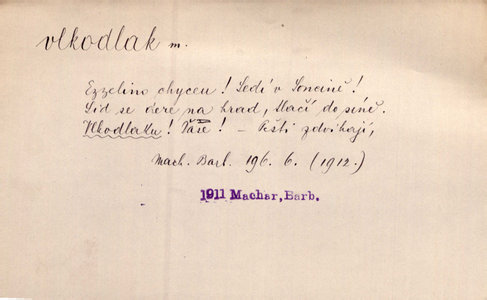 vlkodlak m.
Ezzelino chycen! Sedí v Soncině!
Lid se dere na hrad, tlačí do síně.
Vlkodlaku! Vaše! – Pěsti zdvíhají,
Mach. Barb. 196. 6. (1912.)
1911 Machar, Barb.